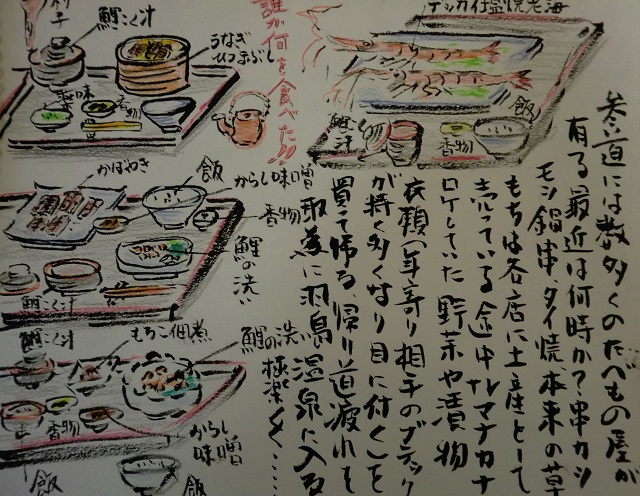 鯉こく汁
うなぎ
ひつまぶし
薬味
香物
誰が何を食べた!!
デッカイ塩焼老海
飯
鯉汁
香物
かばやき
飯
からし味噌
香物
鯉の洗い
鯉こく汁
鯉こく汁
もろこ佃煮
鯉の洗い
香物
からし
味噌
飯
飯
参い道には数多くのたべもの屋が
有る最近は何時か?串カツ
モン鍋串、タイ焼、本来の草
もちは各店に土産として
売っている途中ナルマナカナ
ロケしていた野菜や漬物
衣類(年寄り相手のブテック
が狭く多くなり目に付く)を
買って帰る、帰り道疲れを
取為に羽島温泉に入る
極楽々……